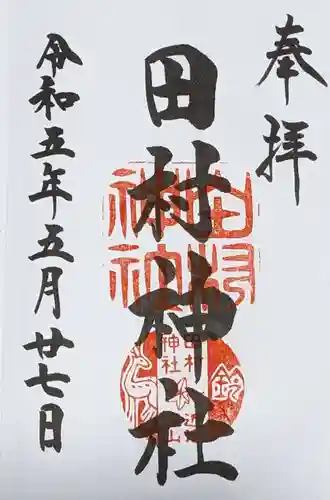 奉拝
田村神社
令和五年五月廿七日
田村
神社
鈴